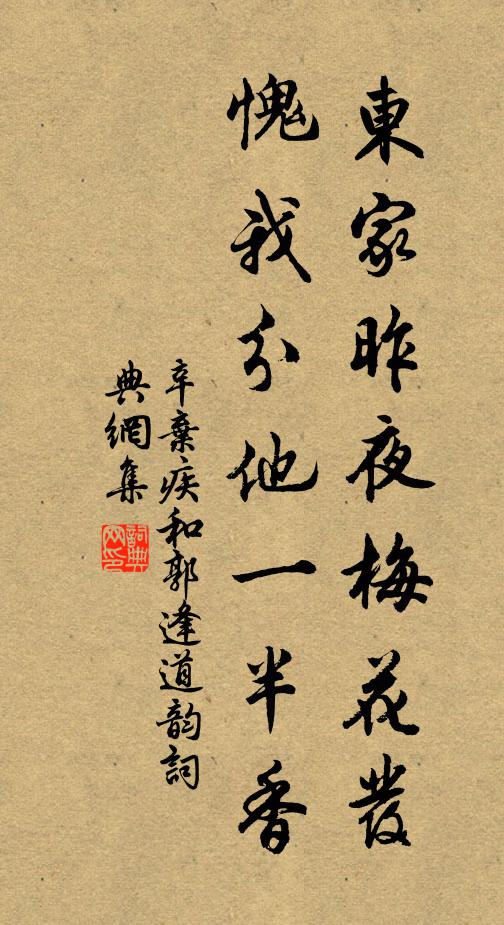 東家昨夜梅花發
愧我分他一半香
辛棄疾和郭逢道韵詞
典網集
詞典網印